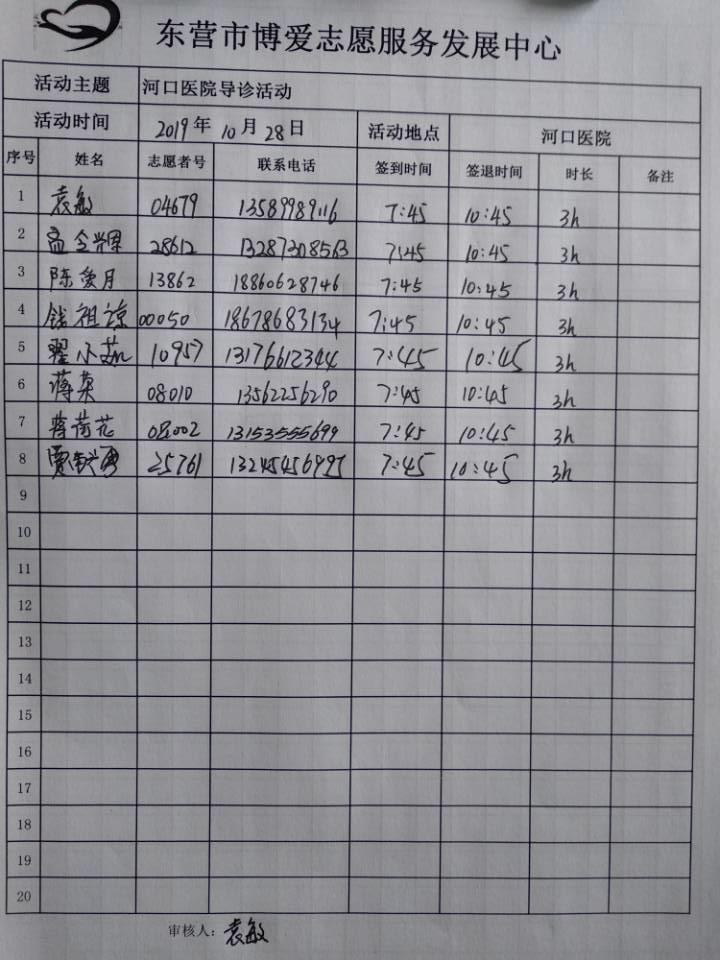 东营市博爱志愿服务发展中心
活动主题 河口医院导诊活动
活动时间 2019年 10月 28日 活动地点 河口医院
序号 姓名 志愿者号 联系电话 签到时间 签退时间 时长 备注
1 袁敏 04679 13589989116 7:45 10:45 3h
2 孟令辉 28612 13287308563 7:45 10:45 3h
3 陈爱月 13862 18860628746 7:45 10:45 3h
4 钱祖谅 00050 18678683134 7:45 10:45 3h
5 翟小茹 10957 13176612344 7:45 10:45 3h
6 蒋英 08010 13562256290 7:45 10:45 3h
7 蒋荷花 08002 13153555699 7:45 10:45 3h
8 25761 7:45 10:45 3h
9
10
11
12
13
14
15
16
17
18
19
20
审核人：袁敏